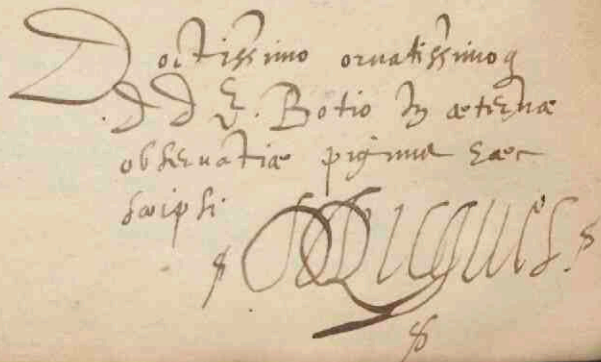 Doctissimo ornatissimoq
D D E. Botio In æternæ
observatiæ pignus hæc
scripsi